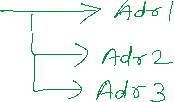 Adr1
Adr2
Adr3